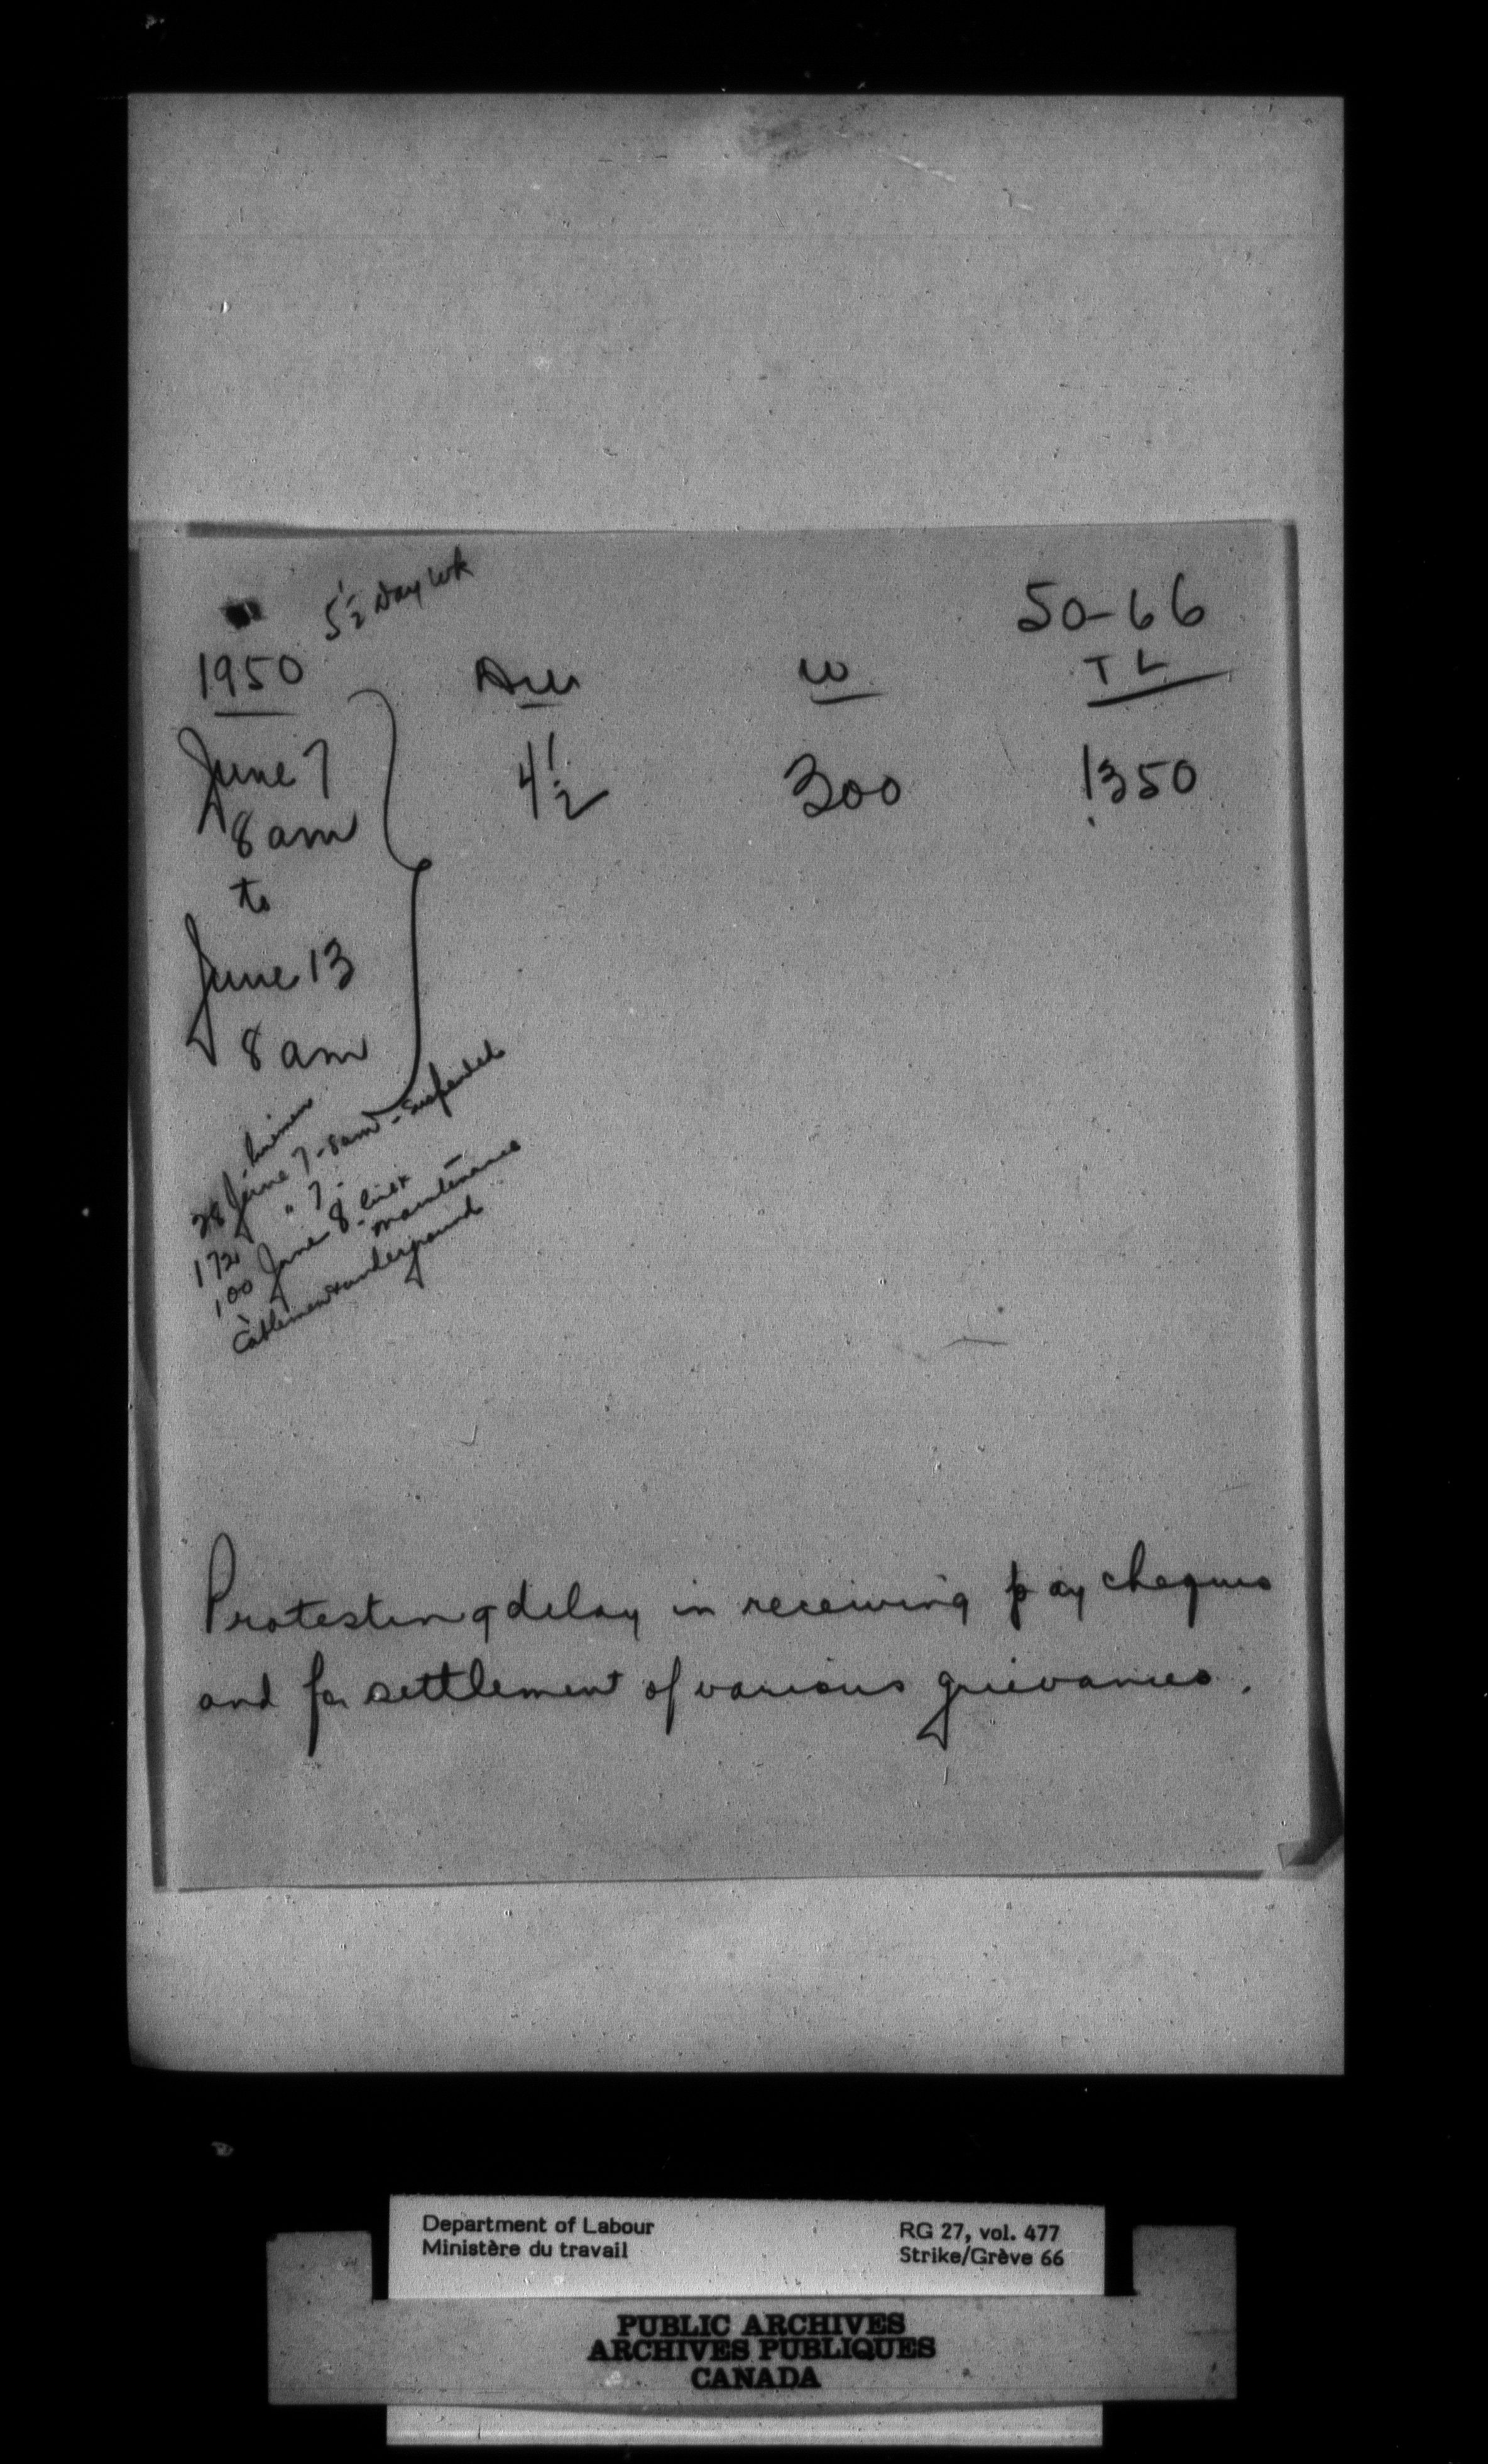 5½ Day Wk
50-66
1950
W
T L
June 7
8 am
to
June 13
8 am
4½
300
1350
28 June 7 - 8 am - Suspended
linemen
172 " 7 -
100 June 8 -
maintenance
Cablemen & underground
Protesting delay in receiving pay cheques
and for settlement of various grievances.
Department of Labour
Ministère du travail
RG 27, vol. 477
Strike/Grève 66
PUBLIC ARCHIVES
ARCHIVES PUBLIQUES
CANADA